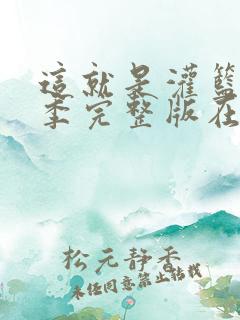 這就是灌籃
季完整版在
松元静香
未经同意禁止转载